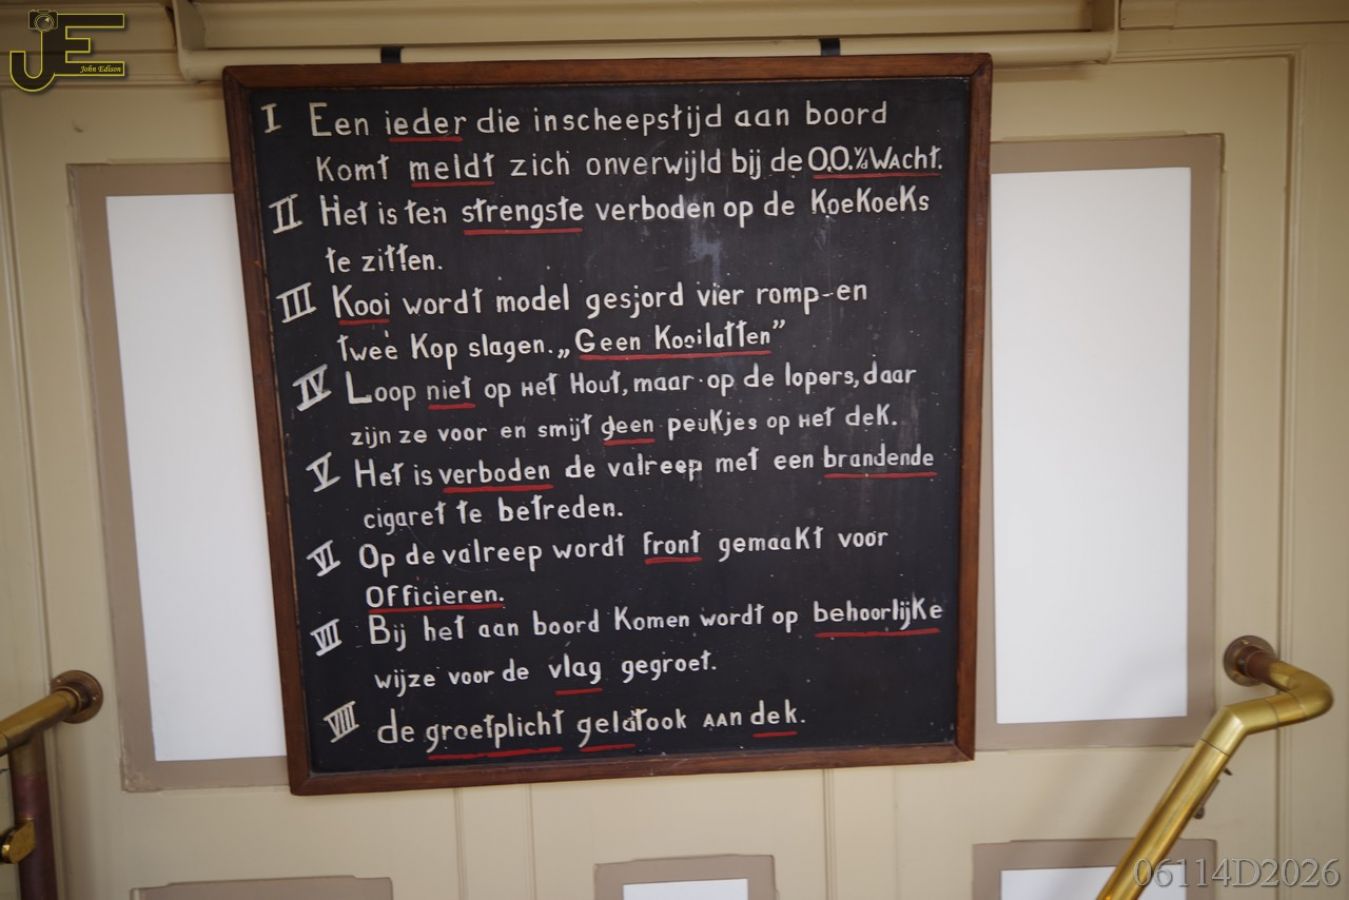 JE
John Edison
I Een ieder die inscheepstijd aan boord
komt meldt zich onverwijld bij de O.O. v/d Wacht.
II Het is ten strengste verboden op de KoeKoeKs
te zitten.
III Kooi wordt model gesjord vier romp-en
tweè Kop slagen. „Geen Kooilatten”
IV Loop niet op Het Hout, maar op de lopers, daar
zijn ze voor en smijt geen peukjes op Het dek.
V Het is verboden de valreep met een brandende
cigaret te betreden.
VI Op de valreep wordt front gemaakt voor
Officieren.
VII Bij het aan boord Komen wordt op behoorlijke
wijze voor de vlag gegroet.
VIII de groetplicht geldt ook AAN dek.
06114D2026